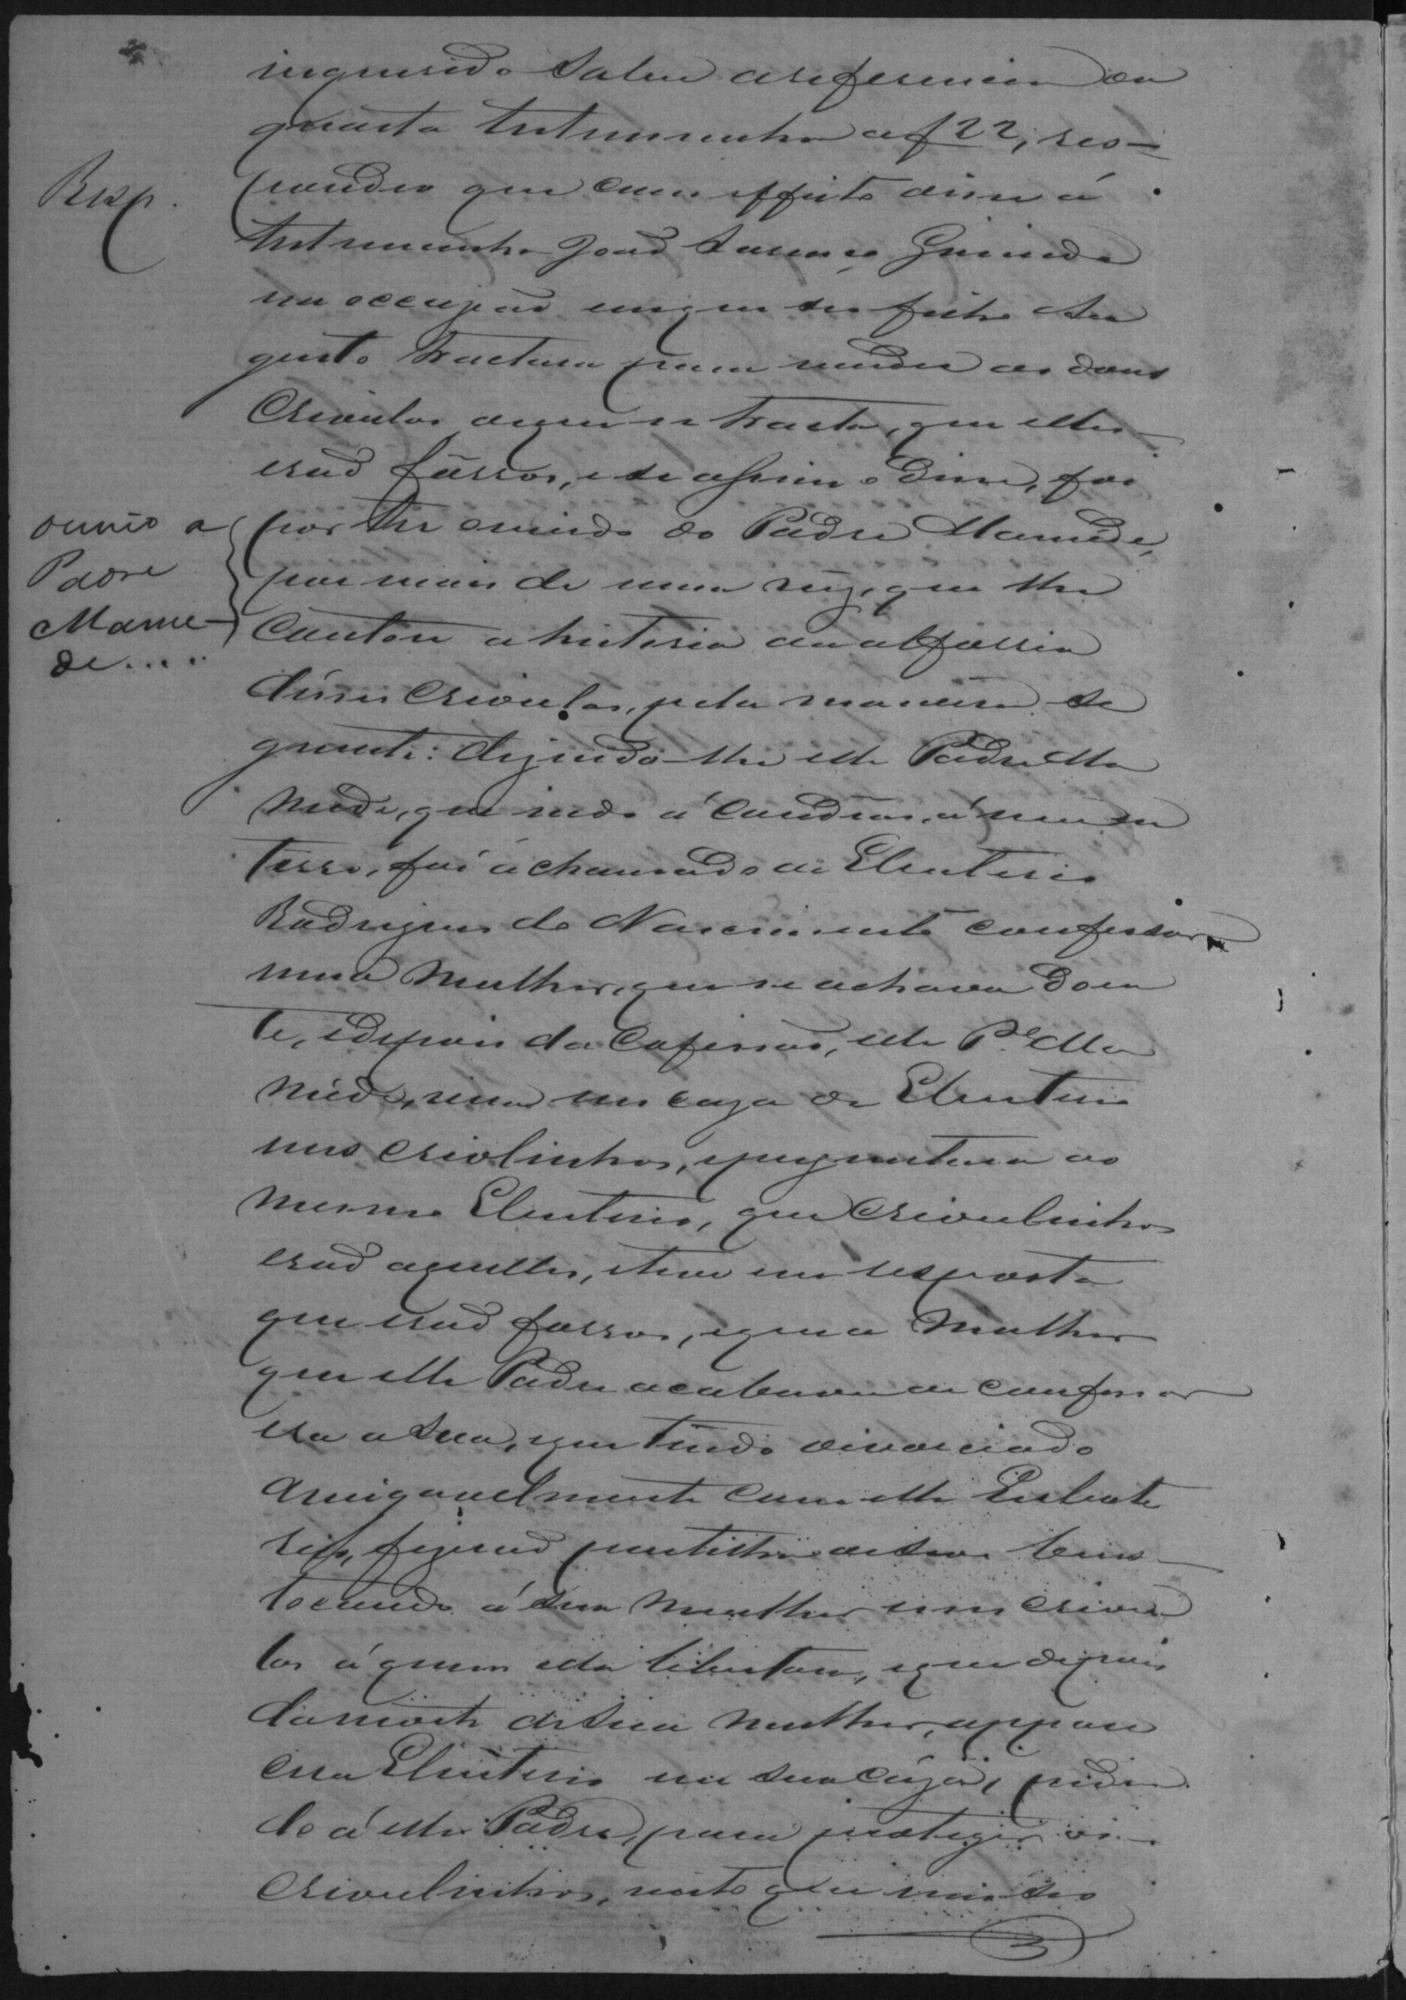 inquirido sobre a referencia da
quarta testemunha a f 22, res-
Resp.
pondeo que com effeito disse á
testemunha João
na occasião em que seu filho Au
gusto tractava para vender os dous
Crioulos de que se tracta, que elles
erão fôrros, e se assim o disse, foi
ouvio a
Padre
Mame-
de....
por ter ouvido do Padre Mamede,
por mais de uma vez, que lhe
Contou a historia da alforria
desses Crioulos, pela maneira se
guinte: dizendo-lhe elle Padre Ma
mede, que indo á á um en
terro, foi á chamado de Eleuterio
Rodrigues do Nascimento confessar
uma Mulher, que se achava doen
te, e depois da Cofissão, elle Pe. Ma
méde, vira em caza de Eleuterio
uns criolinhos, e perguntara ao
mesmo Eleuterio, que Crioulinhos
erão aquelles, e teve em resposta
que erão forros, e que a Mulher
que elle Padre acabava de confessar
era a sua, e que tendo divorciado
amigavelmente com elle
rio, fizerão partilha de seus bens
tocando á sua Mulher uns criou
los á quem ella libertou, e que depois
da morte de sua mulher, appare
ceu Eleuterio em sua cáza, pedin
do á elle Padre, para proteger os
Crioulinhos, visto que